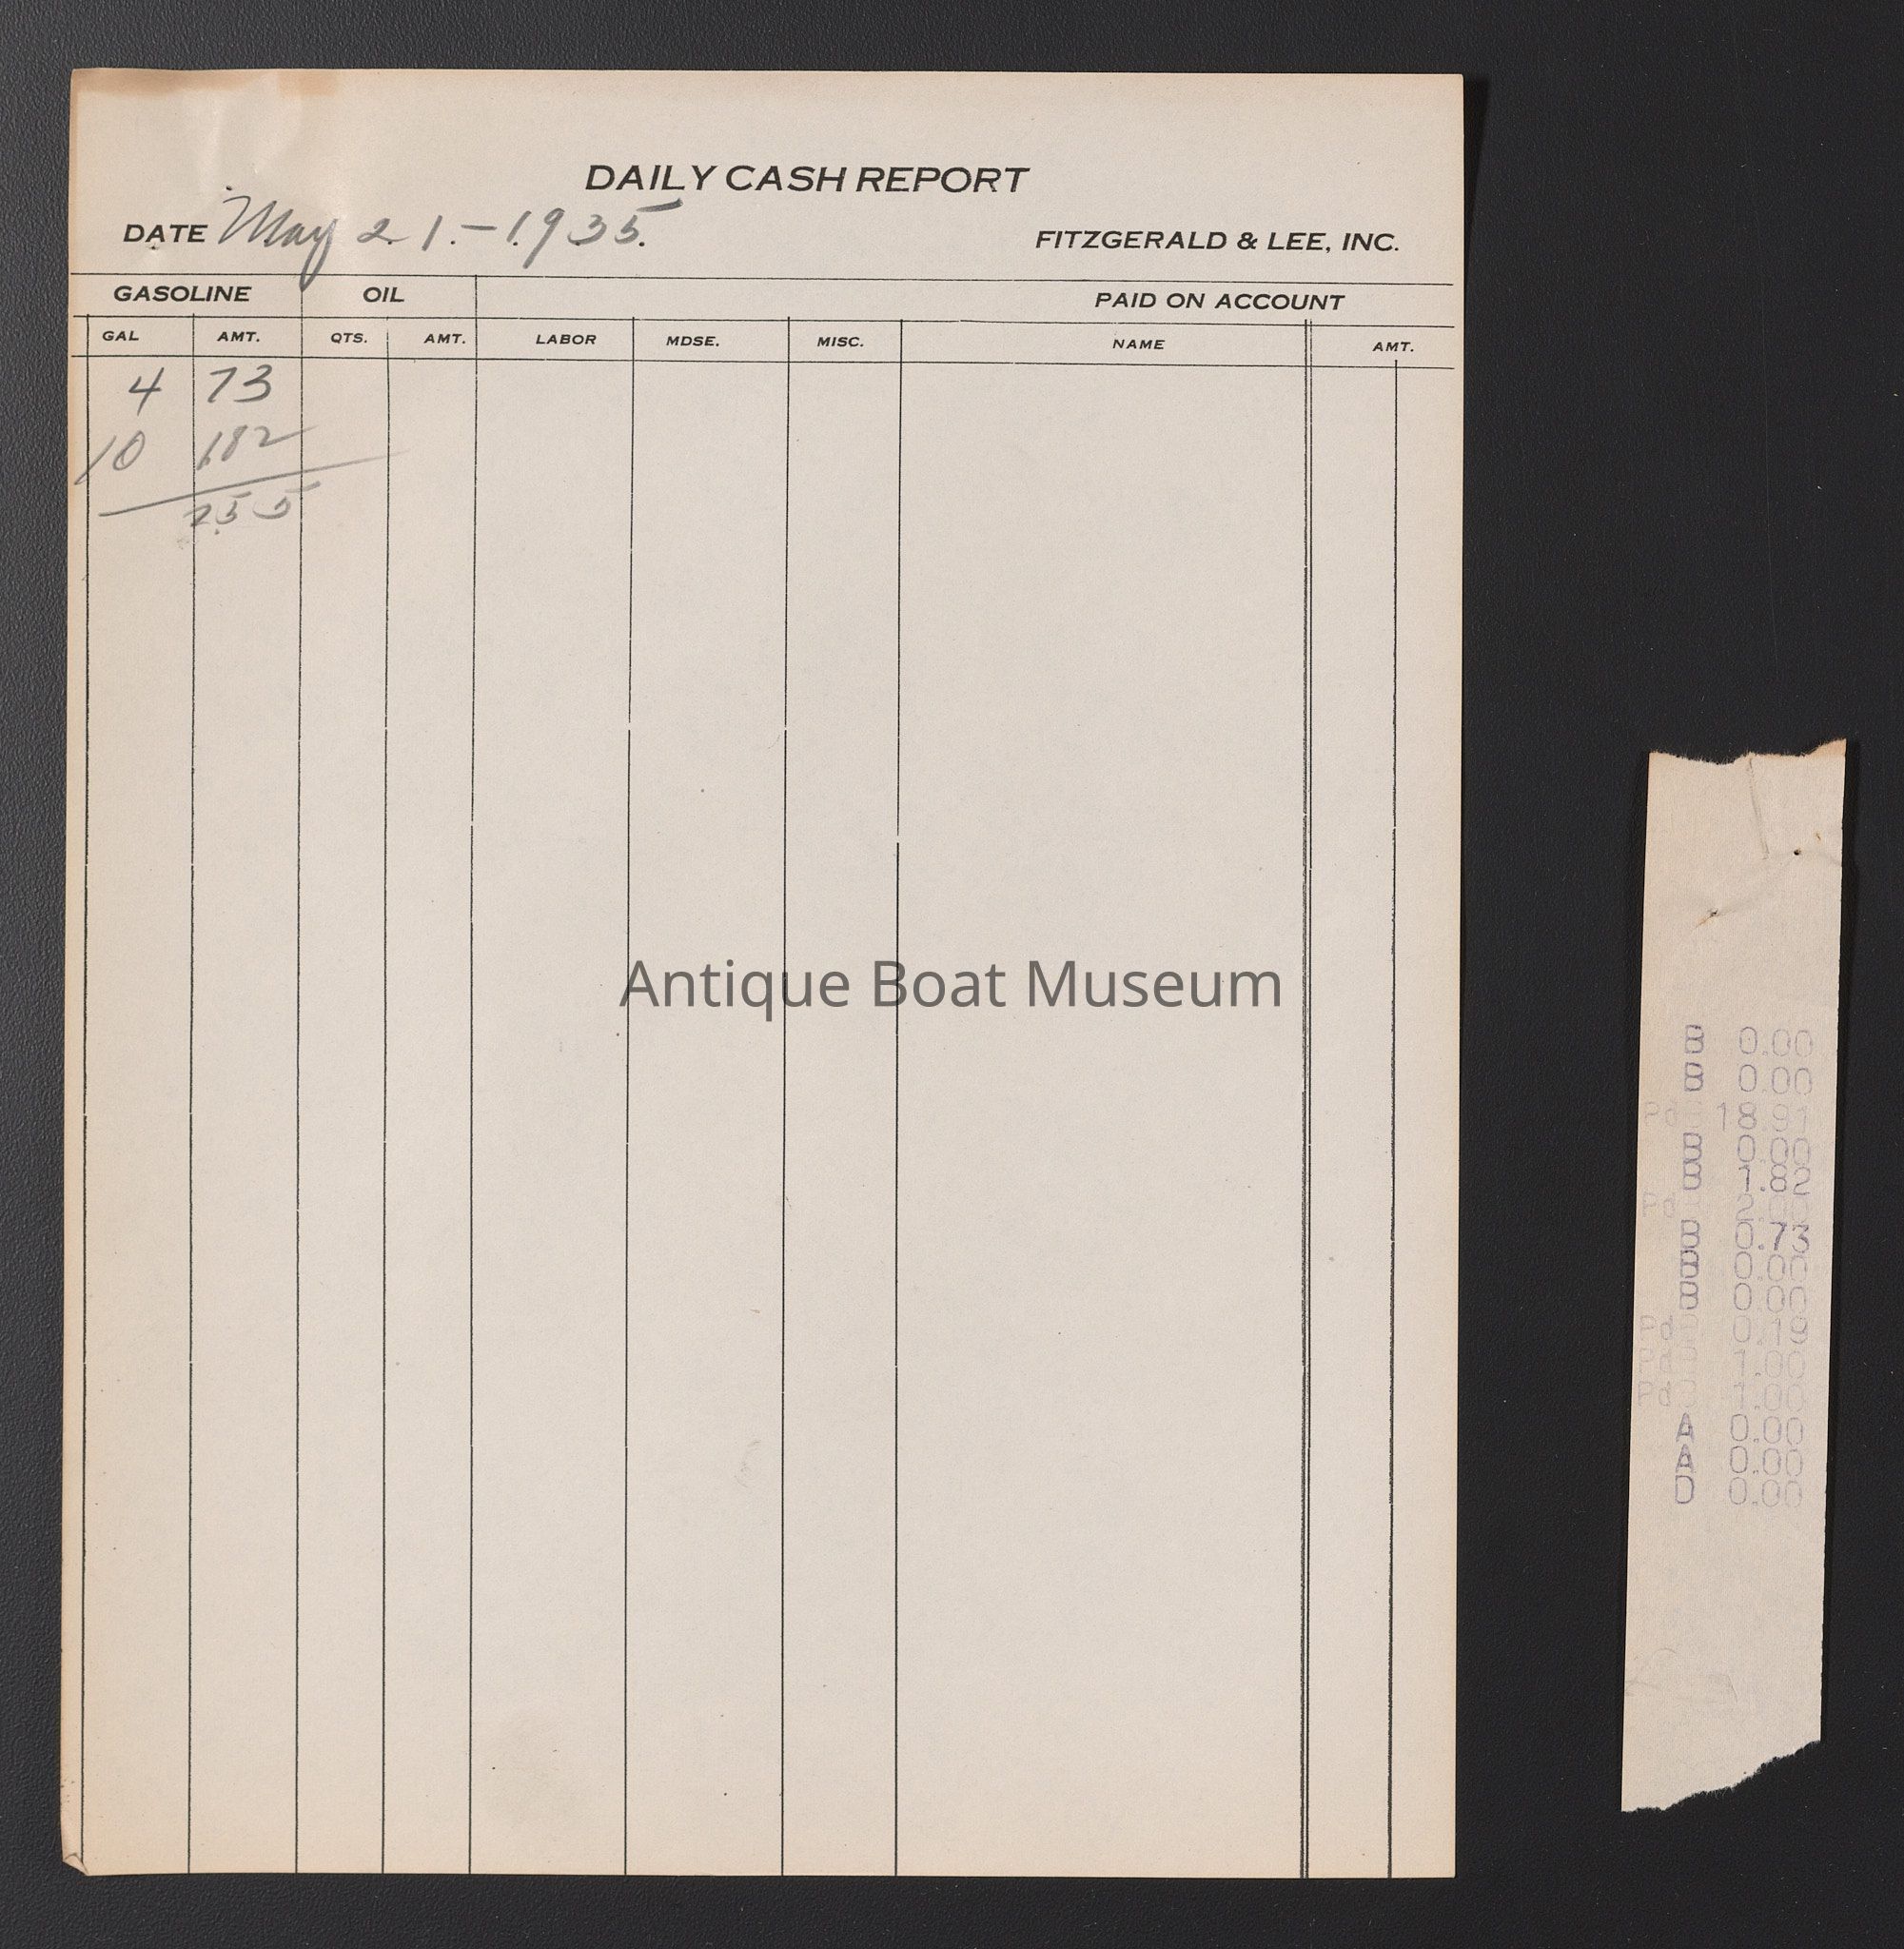 DAILY CASH REPORT
DATE May 21.-1935.
FITZGERALD & LEE, INC.
GASOLINE OIL PAID ON ACCOUNT
GAL AMT. QTS. AMT. LABOR MDSE. MISC. NAME AMT.
4 73
10 182
255
Antique Boat Museum
B 0.00
B 0.00
Pd 18.91
B 0.00
B 1.82
Pd 2.00
B 0.73
B 0.00
B 0.00
Pd 0.19
Pd 1.00
Pd 1.00
A 0.00
A 0.00
D 0.00